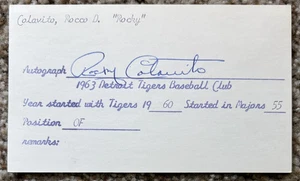 Colavito, Rocco D. "Rocky"
Autograph Rocky Colavito
1963 Detroit Tigers Baseball Club
Year started with Tigers 19 60 Started in Majors 55
Position OF
remarks: